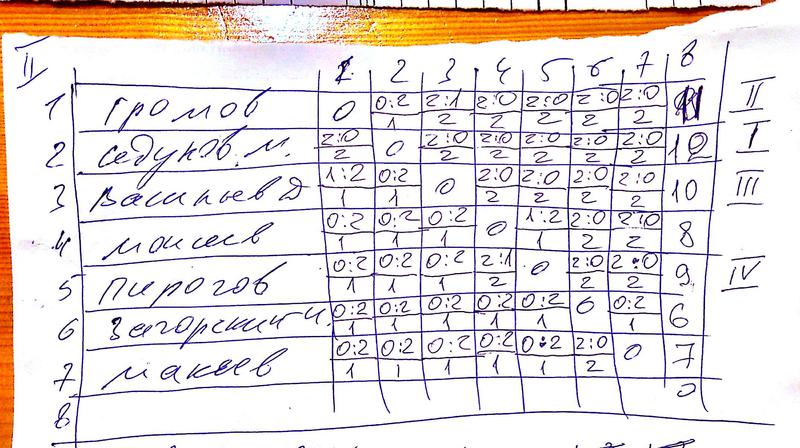 II 1 2 3 4 5 6 7 8
1 Громов 0 0:2 2:1 2:0 2:0 2:0 2:0 11 II
1 2 2 2 2 2
2 Седунов. М. 2:0 0 2:0 2:0 2:0 2:0 2:0 12 I
2 2 2 2 2 2
3 Васильев Д 1:2 0:2 0 2:0 2:0 2:0 2:0 10 III
1 1 2 2 2 2
4 Моисеев 0:2 0:2 0:2 0 1:2 2:0 2:0 8
1 1 1 1 2 2
5 Пирогов 0:2 0:2 0:2 2:1 0 2:0 2:0 9 IV
1 1 1 2 2 2
6 Загорский И. 0:2 0:2 0:2 0:2 0:2 0 0:2 6
1 1 1 1 1 1
7 Макеев 0:2 0:2 0:2 0:2 0:2 2:0 0 7
1 1 1 1 1 2
8 0